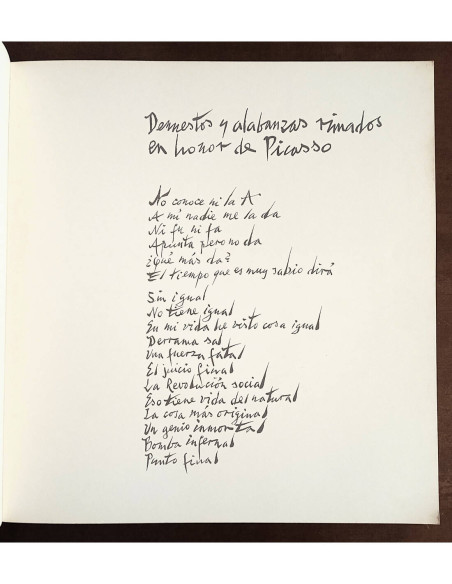 Denuestos y alabanzas rimados
en honor de Picasso
No conoce ni la A
A mi nadie me la da
Ni fu ni fa
Apunta pero no da
¿Qué más da?
El tiempo que es muy sabio dirá
Sin igual
No tiene igual
En mi vida he visto cosa igual
Derrama sal
Una fuerza fatal
El juicio final
La Revolución social
Eso tiene vida del natural
La cosa más original
Un genio inmortal
Bomba infernal
Punto final